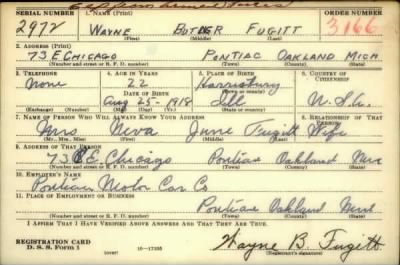 SERIAL NUMBER 1. NAME (Print) ORDER NUMBER
2972 WAYNE BUTLER FUGITT 3166
(First) (Middle) (Last)
2. ADDRESS (Print)
73 E CHICAGO PONTIAC OAKLAND MICH
(Number and street or R. F. D. number) (Town) (County) (State)
3. TELEPHONE 4. AGE IN YEARS 5. PLACE OF BIRTH 6. COUNTRY OF CITIZENSHIP
None 22 Harrisburg
DATE OF BIRTH (Town or county)
Aug 25-1918 Ill U.S.A.
(Exchange) (Number) (Mo.) (Day) (Yr.) (State or country)
7. NAME OF PERSON WHO WILL ALWAYS KNOW YOUR ADDRESS 8. RELATIONSHIP OF THAT PERSON
Mrs Neva June Fugitt Wife
(Mr., Mrs., Miss) (First) (Middle) (Last)
9. ADDRESS OF THAT PERSON
73 E. Chicago Pontiac Oakland Mich
(Number and street or R. F. D. number) (Town) (County) (State)
10. EMPLOYER'S NAME
Pontiac Motor Car Co
11. PLACE OF EMPLOYMENT OR BUSINESS
Pontiac Oakland Mich
(Number and street or R. F. D. number) (Town) (County) (State)
I AFFIRM THAT I HAVE VERIFIED ABOVE ANSWERS AND THAT THEY ARE TRUE.
REGISTRATION CARD
D. S. S. FORM 1 16-17105 Wayne B. Fugitt
(over) (Registrant's signature)